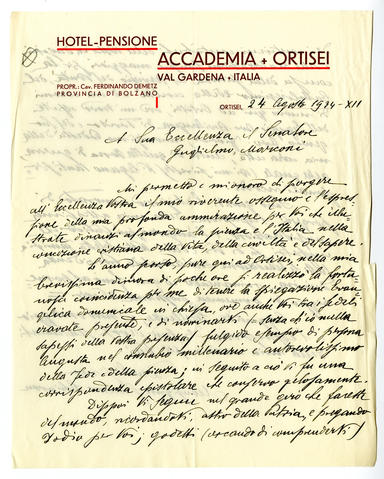 HOTEL-PENSIONE
ACCADEMIA + ORTISEI
VAL GARDENA + ITALIA
PROPR.: Cav. FERDINANDO DEMETZ
PROVINCIA DI BOLZANO
ORTISEI, 24 Agosto 1934-XII
A Sua Eccellenza il Senatore
Guglielmo Marconi
Mi permetto e mi onoro di porgere
all'Eccellenza Vostra il mio riverente ossequio e l'espres=
sione della mia profonda ammirazione per Voi che illu=
strate dinanzi al mondo la scienza e l'Italia nella
concezione cristiana della vita, della civiltà e del sapere.
L'anno scorso, pure qui ad Ortisei, nella mia
brevissima dimora di poche ore si realizzò la fortu=
nosa coincidenza per me di tenere la spiegazione evan=
gelica domenicale in chiesa, ove anche Voi tra i fedeli
eravate presente, e di nominarvi (senza che io nulla
sapessi della Vostra presenza) fulgido esempio di persona
augusta nel connubio millenario e autorevolissimo
della fede e della scienza; in seguito a ciò vi fu una
corrispondenza epistolare che conservo gelosamente.
Dippoi Vi seguii nel grande giro che faceste
del mondo, ricordandovi, astro della Patria, e pregando
Iddio per Voi; godetti (cercando di comprendervi)